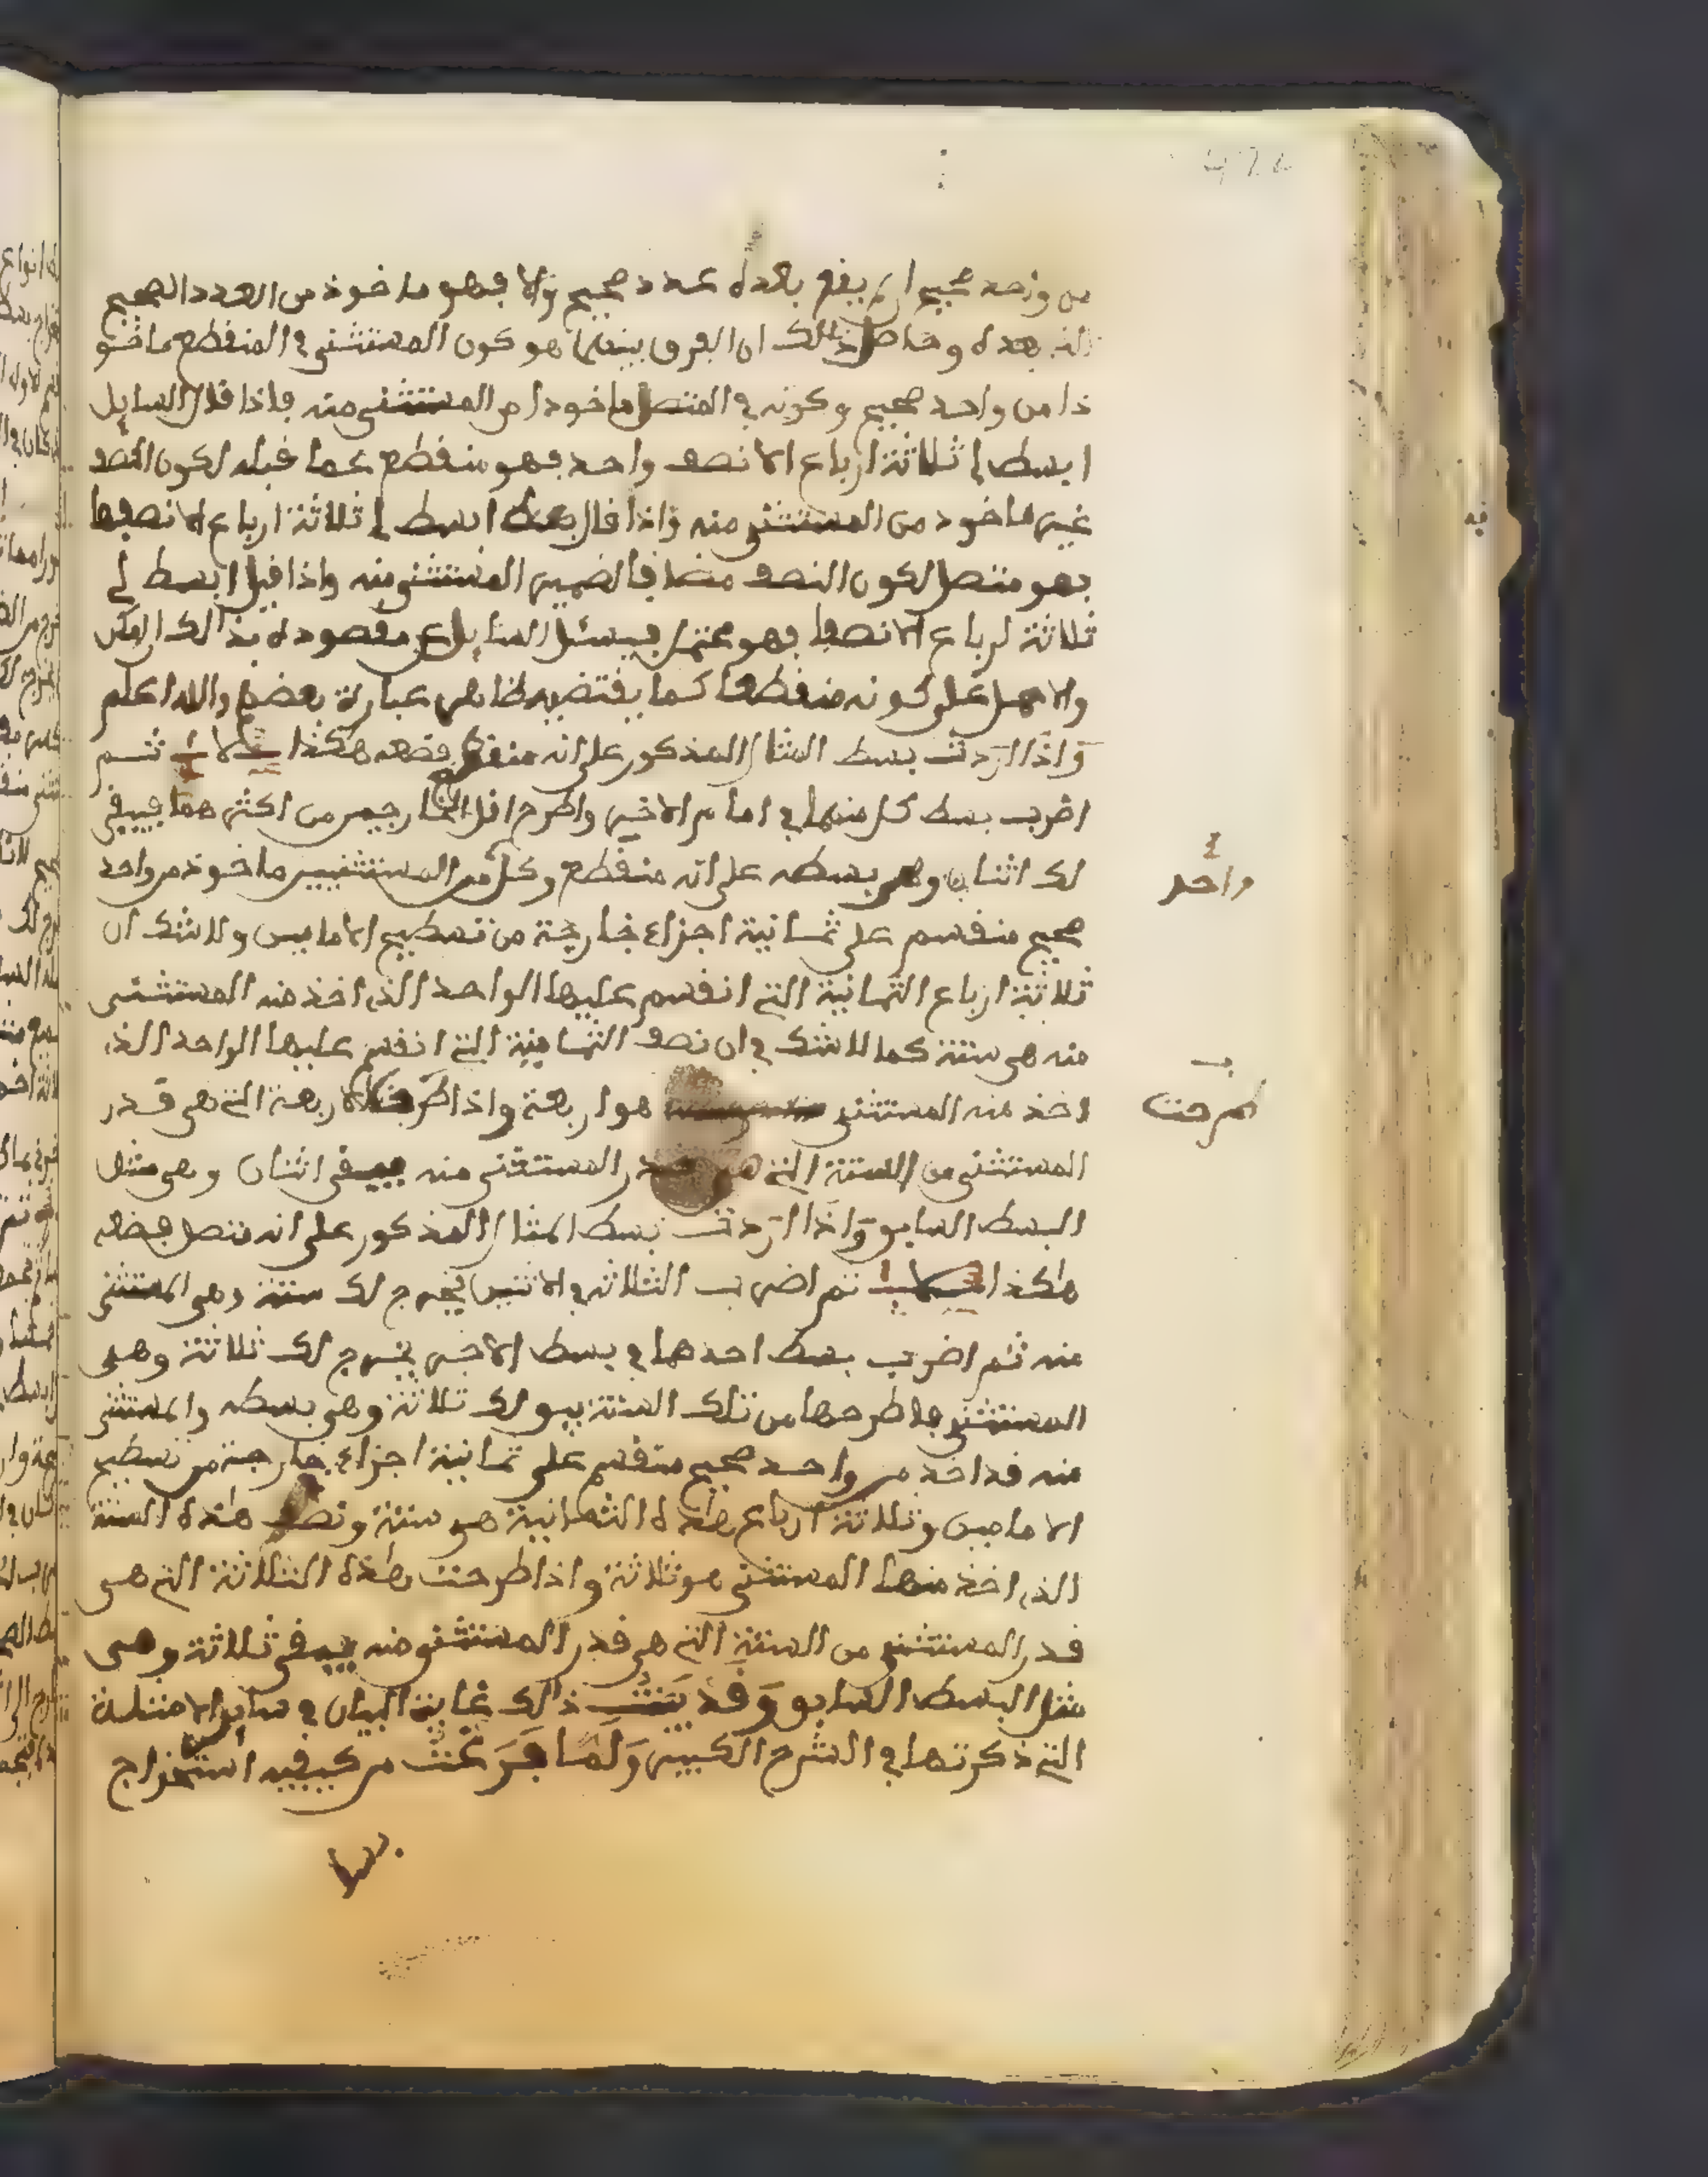 من واحد صحيح ان لم يقع بعده عدد صحيح والا فهو ماخوذ من العدد الصحيح
الذي بعده وحاصل ذلك ان الفرق بينهما هو كون المستثنى في المنقطع ماخو
ذا من واحد صحيح وكونه في المتصل ماخوذا من المستثنى منه فاذا قال السايل
ابسط لي ثلاثة ارباع الا نصف واحد فهو منقطع عما قبله لكون النصف
غير ماخوذ من المستثنى منه واذا قال ابسط لي ثلاثة ارباع الا نصفها
فهو متصل لكون النصف مضافا لضمير المستثنى منه واذا قيل ابسط لي
ثلاثة ارباع الا نصفا فهو محتمل فيسئل السايل عن مقصوده بذالك ان امكن
والا حمل على كونه منقطعا كما يقتضيه ظاهر عبارة بعضهم والله اعلم
واذا اردت بسط المثال المذكور على انه منقطع فضعه هكذا ثم
اضرب بسط كل منهما في امام الاخير واطرح اقل الخارجين من اكثرهما فيبقى
لك اثنان وهي بسطه على انه منقطع وكل من المستثنيين ماخوذ من واحد
صحيح منقسم على ثمانية اجزاء خارجة من تسطيح الامامين ولا شك ان
ثلاثة ارباع الثمانية التي انقسم عليها الواحد الذي اخذ منه المستثنى
منه هي ستة كما لا شك في ان نصف الثمانية التي انقسم عليها الواحد الذي
اخذ منه المستثنى هو اربعة واذا طرحت الاربعة التي هي قدر
المستثنى من الستة التي هي قدر المستثنى منه يبقى اثنان وهي مثل
البسط السابق واذا اردت بسط المثال المذكور على انه متصل فضعه
هكذا ثم اضرب الثلاثة في الاثنين يخرج لك ستة وهي المستثنى
منه ثم اضرب بسط احدهما في بسط الاخير يخرج لك ثلاثة وهي
المستثنى فاطرحها من تلك الستة يبق لك ثلاثة وهي بسطه والمستثنى
منه قد اخذ من واحد صحيح منقسم على ثمانية اجزاء خارجة من تسطيح
الامامين وثلاثة ارباع هذه الثمانية هو ستة ونصف هذه الستة
الذي اخذ منها المستثنى هو ثلاثة واذا طرحت هذه الثلاثة التي هي
قدر المستثنى من الستة التي هي قدر المستثنى منه يبقى ثلاثة وهي
مثل البسط السابق وقد بينت ذالك غاية البيان في ساير الامثلة
التي ذكرتها في الشرح الكبير ولما فرغت من كيفية استخراج
واحد
طرحت
بسط